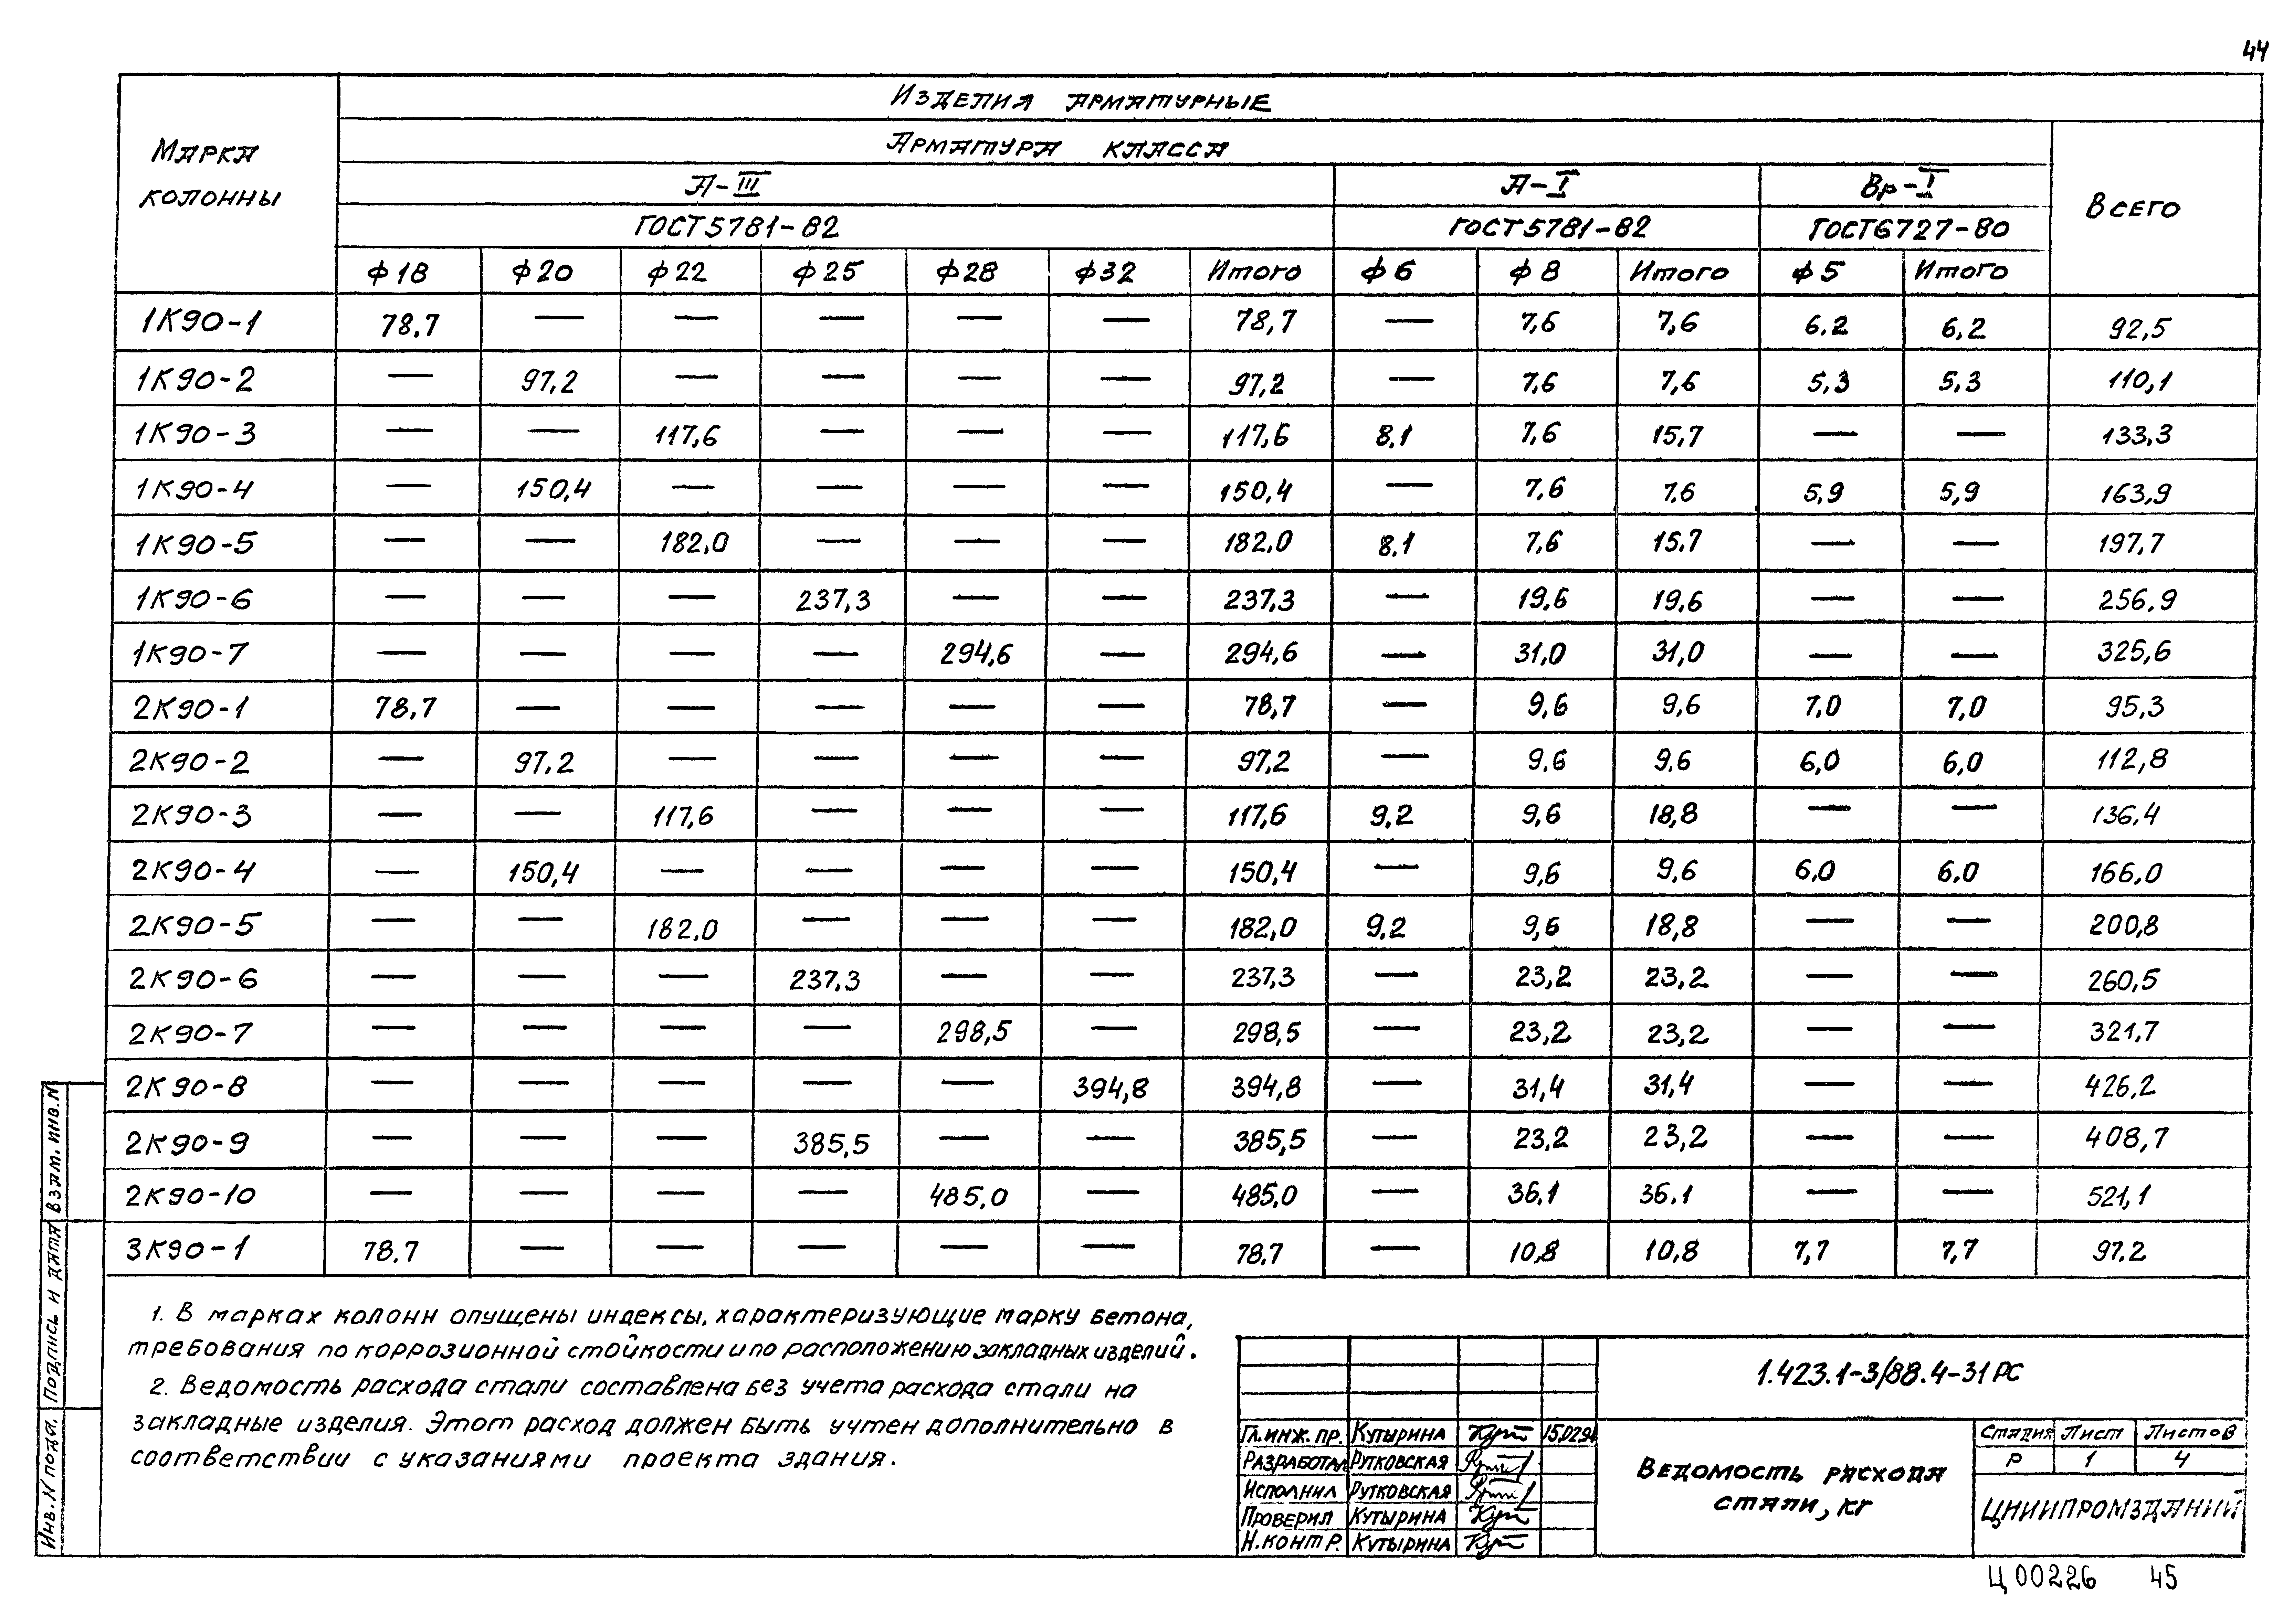 44
Изделия арматурные
Марка колонны
Арматура класса
Всего
А-III А-I Вр-I
ГОСТ 5781-82 ГОСТ 5781-82 ГОСТ 6727-80
ф18 ф20 ф22 ф25 ф28 ф32 Итого ф6 ф8 Итого ф5 Итого
1К90-1 78,7 — — — — — 78,7 — 7,6 7,6 6.2 6,2 92,5
1К90-2 — 97,2 — — — — 97,2 — 7,6 7,6 5,3 5,3 110,1
1К90-3 — — 117,6 — — — 117,6 8,1 7,6 15,7 — — 133,3
1К90-4 — 150,4 — — — — 150,4 — 7,6 7,6 5,9 5,9 163,9
1К90-5 — — 182,0 — — — 182,0 8,1 7,6 15,7 — — 197,7
1К90-6 — — — 237,3 — — 237,3 — 19,6 19,6 — — 256,9
1К90-7 — — — — 294,6 — 294,6 — 31,0 31,0 — — 325,6
2К90-1 78,7 — — — — — 78,7 — 9,6 9,6 7,0 7,0 95,3
2К90-2 — 97,2 — — — — 97,2 — 9,6 9,6 6,0 6,0 112,8
2К90-3 — — 117,6 — — — 117,6 9,2 9,6 18,8 — — 136,4
2К90-4 — 150,4 — — — — 150,4 — 9,6 9,6 6,0 6,0 166,0
2К90-5 — — 182,0 — — — 182,0 9,2 9,6 18,8 — — 200,8
2К90-6 — — — 237,3 — — 237,3 — 23,2 23,2 — — 260,5
2К90-7 — — — — 298,5 — 298,5 — 23,2 23,2 — — 321,7
2К90-8 — — — — — 394,8 394,8 — 31,4 31,4 — — 426,2
2К90-9 — — — 385,5 — — 385,5 — 23,2 23,2 — — 408,7
2К90-10 — — — — 485,0 — 485,0 — 36,1 36,1 — — 521,1
3К90-1 78,7 — — — — — 78,7 — 10,8 10,8 7,7 7,7 97,2
1. В марках колонн опущены индексы, характеризующие марку бетона,
требования по коррозионной стойкости и по расположению закладных изделий.
2. Ведомость расхода стали составлена без учета расхода стали на
закладные изделия. Этот расход должен быть учтен дополнительно в
соответствии с указаниями проекта здания.
Взам. инв. N
Подпись и дата
Инв. N подл.
1.423.1-3/88.4-31РС
Гл. инж. пр. Кутырина
Разработал Рутковская
Исполнил Рутковская
Проверил Кутырина
Н. контр. Кутырина
Ведомость расхода
стали, кг
Стадия Лист Листов
Р 1 4
ЦНИИПРОМЗДАНИЙ
Ц00226 45